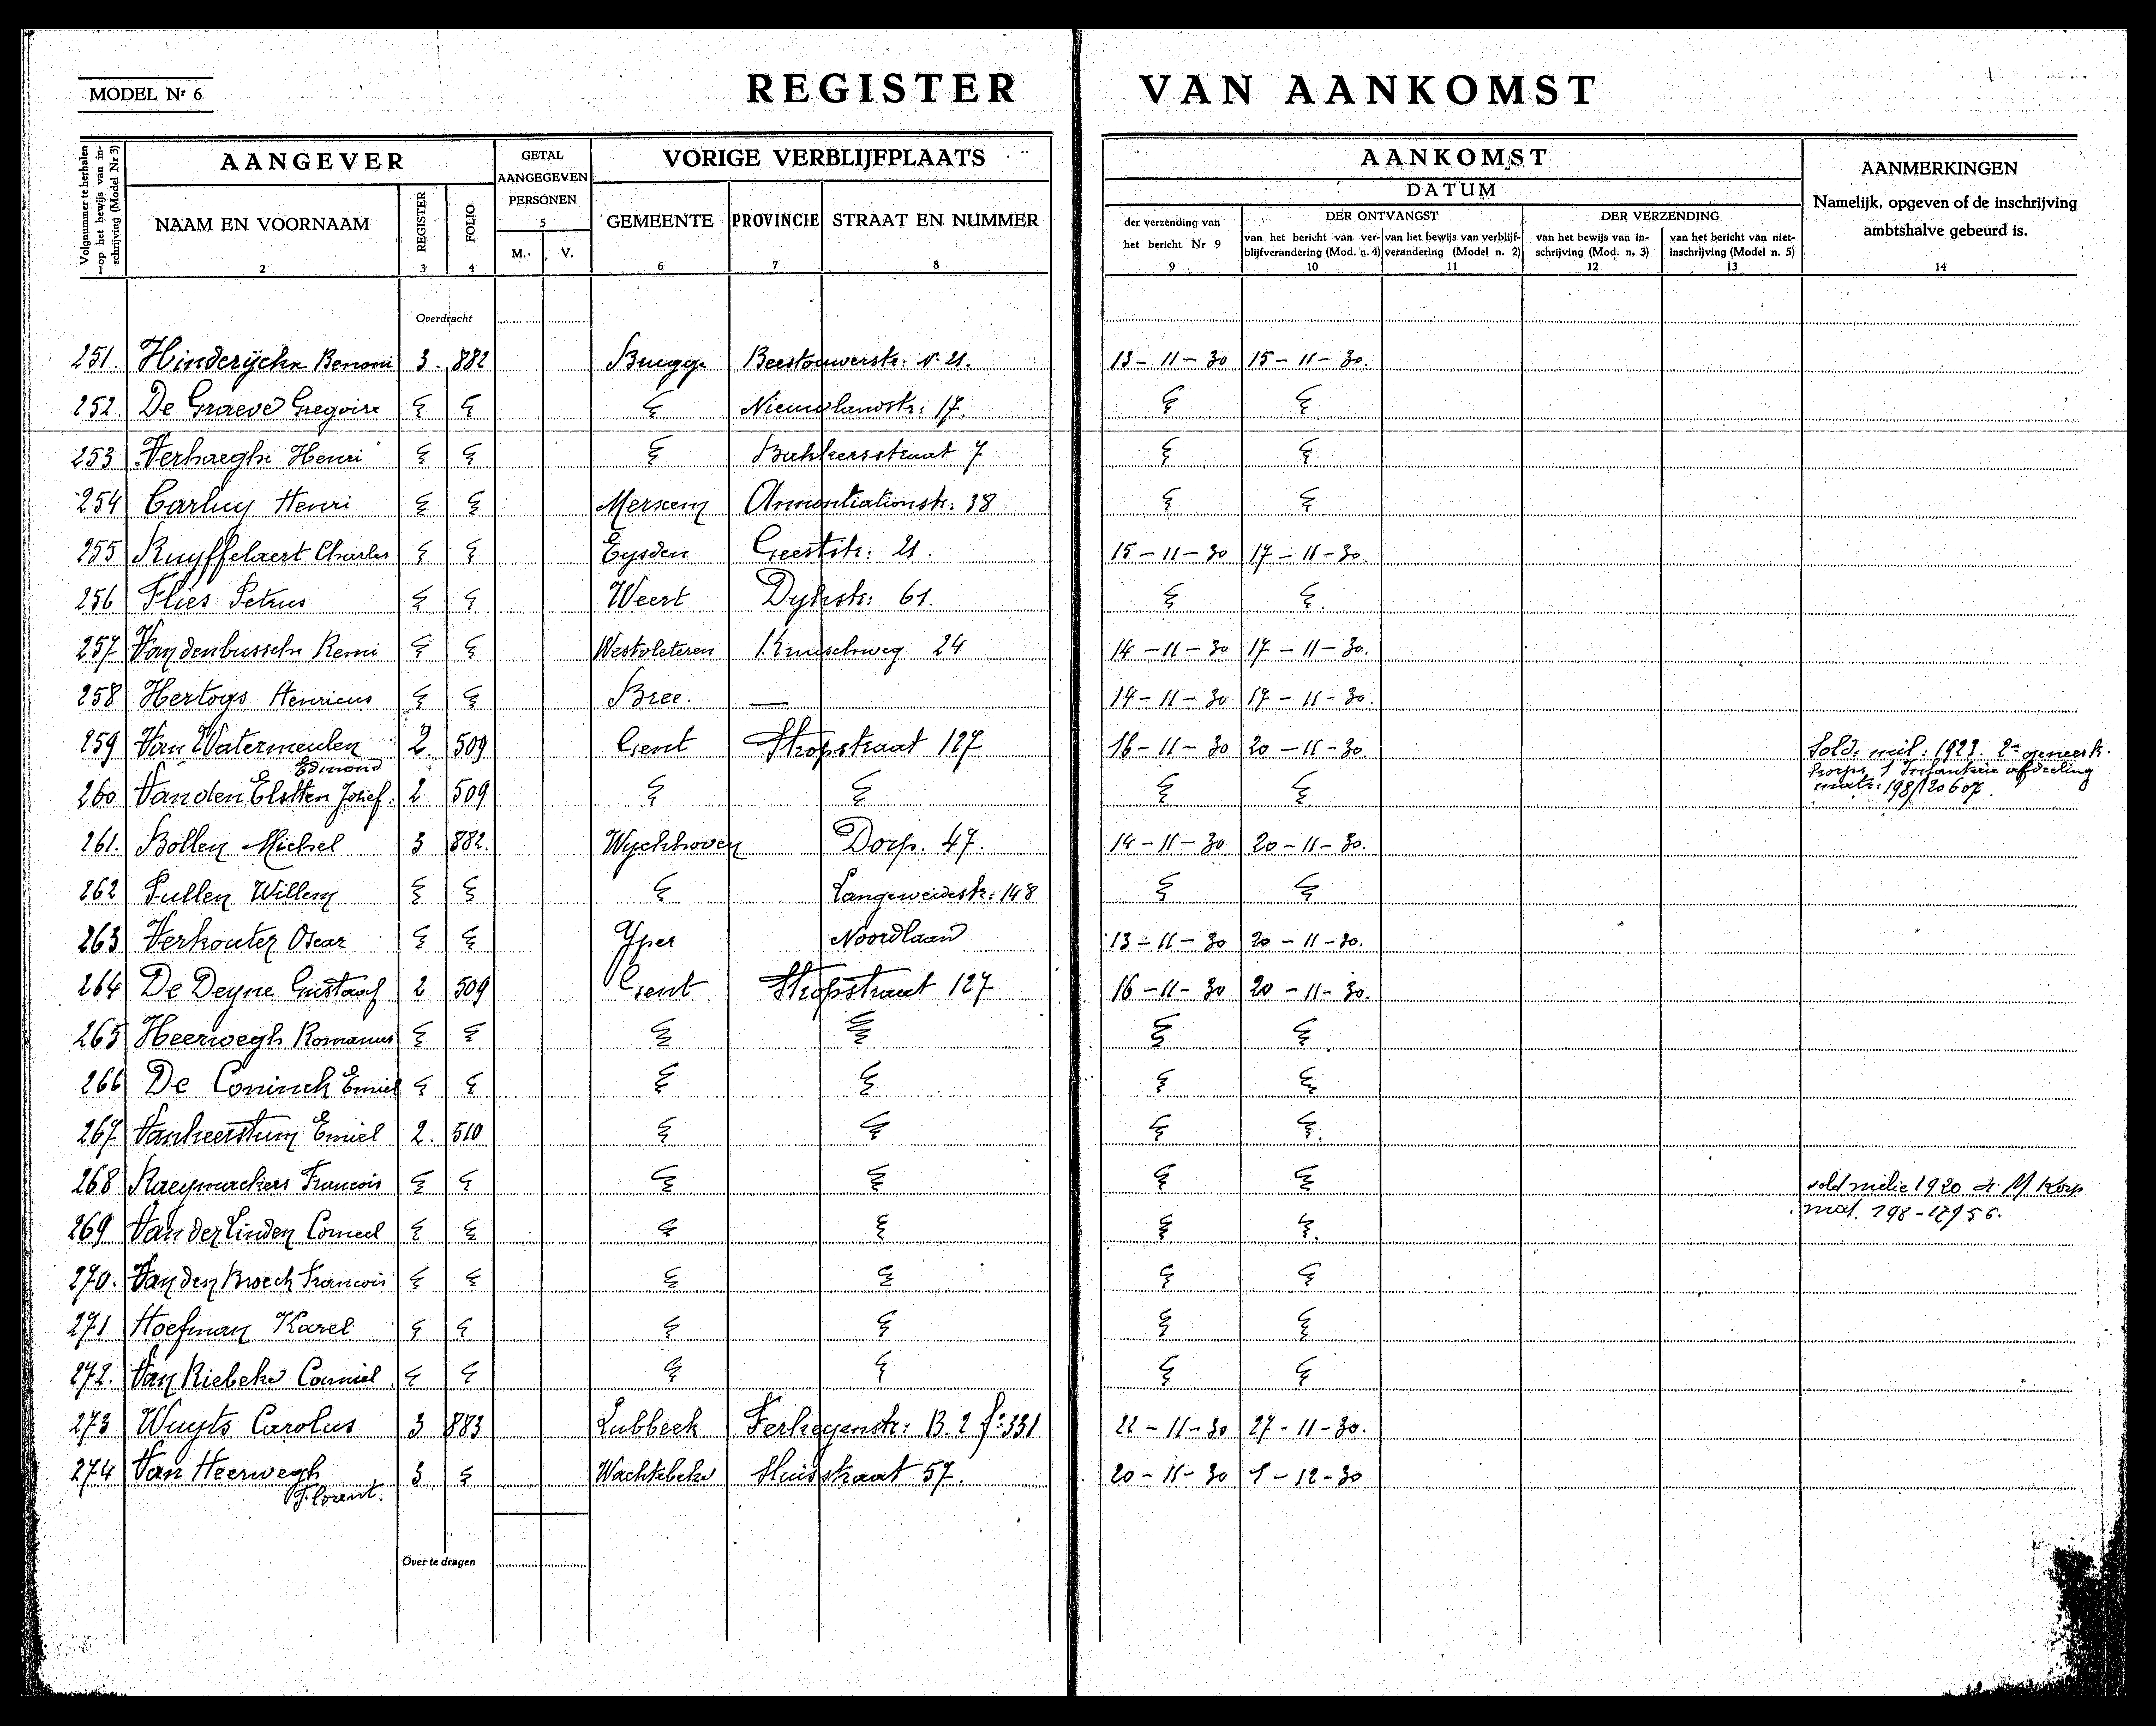 MODEL Nr 6
REGISTER VAN AANKOMST
Volgnummer te herhalen op het bewijs van inschrijving (Model Nr 3)
AANGEVER
GETAL AANGEGEVEN PERSONEN
5
VORIGE VERBLIJFPLAATS
AANKOMST
DATUM
AANMERKINGEN
Namelijk, opgeven of de inschrijving
ambtshalve gebeurd is.
NAAM EN VOORNAAM
REGISTER
FOLIO
M. V.
GEMEENTE PROVINCIE STRAAT EN NUMMER
der verzending van
het bericht Nr 9
DER ONTVANGST
van het bericht van ver-
blijfverandering (Mod. n. 4)
van het bewijs van verblijf-
verandering (Model n. 2)
DER VERZENDING
van het bewijs van in-
schrijving (Mod. n. 3)
van het bericht van niet-
inschrijving (Model n. 5)
2 3 4 6 7 8 9 10 11 12 13 14
Overdracht
251. Hinderÿckx Benoni 3. 882 Brugge Beestouwerstr: N. 21. 13-11-30 15-11-30.
252. De Graeve Gregoire Nieuwlandstr: 17.
253 Verhaeghe Henri straat 7
254 Carluy Henri Merxem Annontiationstr: 38
255 Ruyffelaert Charles Eysden Geeststr: 21. 15-11-30 17-11-30.
256 Flies Petrus Weert Dykstr: 61.
257 Vandenbussche Remi Westvleteren 24 14-11-30 17-11-30.
258 Hertogs Henricus Bree. — 14-11-30 17-11-30.
259 Van Watermeulen 2. 509 Gent Stropstraat 127 16-11-30 20-11-30 Sold. mil: 1923. 2e geneesk.
Edmond korps 1 Infanterie afdeeling
260 Vanden Elstten Josef. 2 509 matr: 198/120607.
261. Bollen Michel 3 882. Wyckhoven Dorp. 47. 14-11-30 20-11-30.
262 Pullen Willem Langeweidestr: 148
263 Verhouter Oscar Yper Noordlaan 13-11-30 20-11-30.
264 De Deyne Gustaaf 2 509 Gent Stropstraat 127 16-11-30 20-11-30.
265 Heerwegh Romanus
266 De Coninck Emiel
267 Vanheerstum Emiel 2. 510
268 Raeymaekers Francois sold milie 1920 Korp
269 Van der Linden Corneel mat. 198-12956.
270. Van den Broeck Francois
271 Hoefman Karel
272. Van Riebeke Camiel
273 Wuyts Carolus 3 883 Lubbeek B. 2 fo 331 22-11-30 27-11-30.
274 Van Heerwegh 3 Wachtebeke Sluisstraat 57. 20-11-30 1-12-30
Florent.
Over te dragen